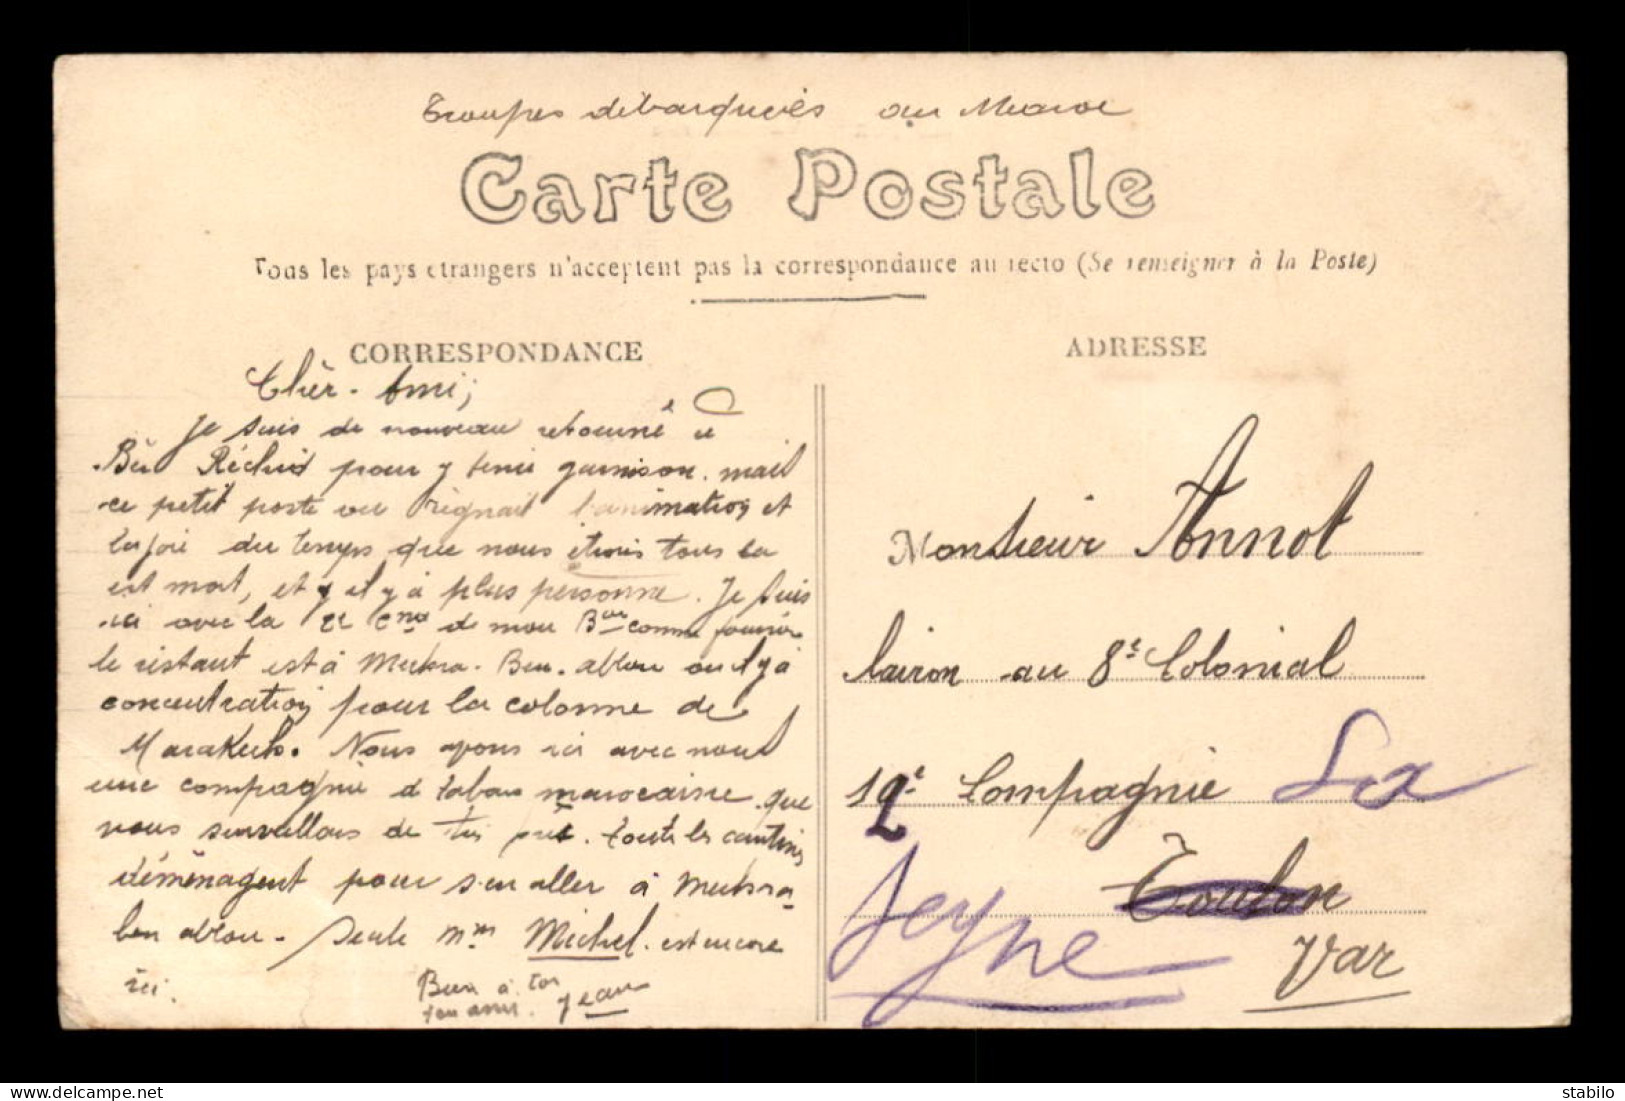 Troupes débarquées au Maroc
Carte Postale
Tous les pays étrangers n'acceptent pas la correspondance au recto (Se renseigner à la Poste)
CORRESPONDANCE
Chèr-Ami;
Je suis de nouveau retourné à
Ber Réchid pour y tenir garnison. mais
ce petit poste ou règnait l'animation et
la joie du temps que nous étions tous la
est mort, et il y a plus personne. Je suis
ici avec la 22 Cnie de mon Bon comme
le restant est à Mechra-Ben-abbou ou il y a
concentration pour la colonne de
Marakech. Nous avons ici avec nous
une compagnie de tabors marocaine que
nous surveillons de tres près. toute les cantines
déménagent pour s'en aller à Mechra-
ben abbou- Seule Mme Michel est encore
ici.
Bien à toi
ton ami. Jean
ADRESSE
Monsieur Annot
clairon au 8e Colonial
12e Compagnie
Toulon
Seyne
Var
stabilo